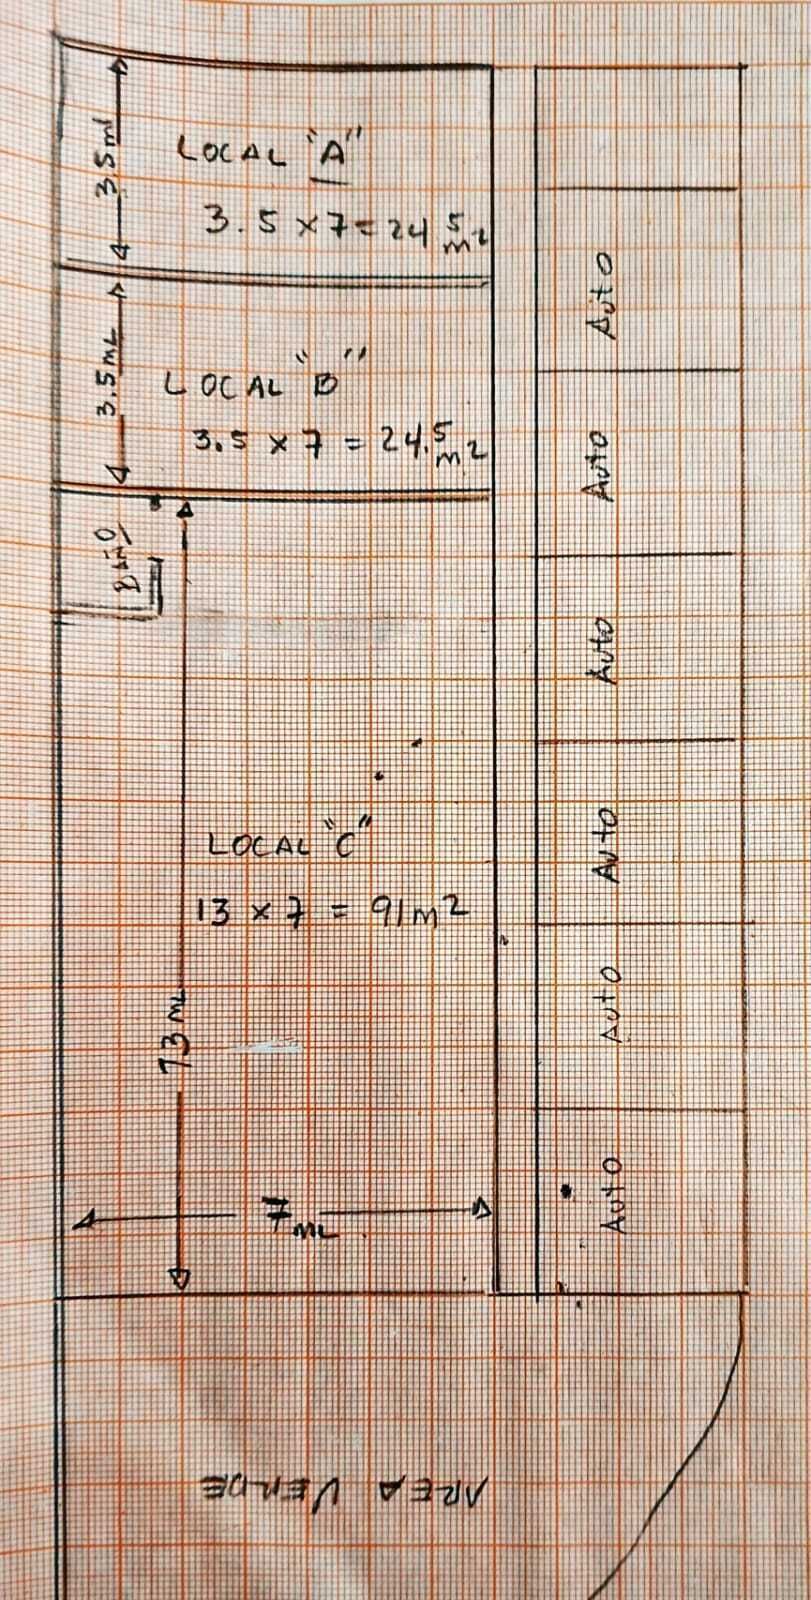 3.5ml
LOCAL "A"
3.5 x 7 = 24.5 m2
3.5mL
LOCAL "B"
3.5 x 7 = 24.5 m2
BAÑO
LOCAL "C"
13 x 7 = 91 m2
13 mL
7 mL
Auto
Auto
Auto
Auto
Auto
Auto
AREA VERDE